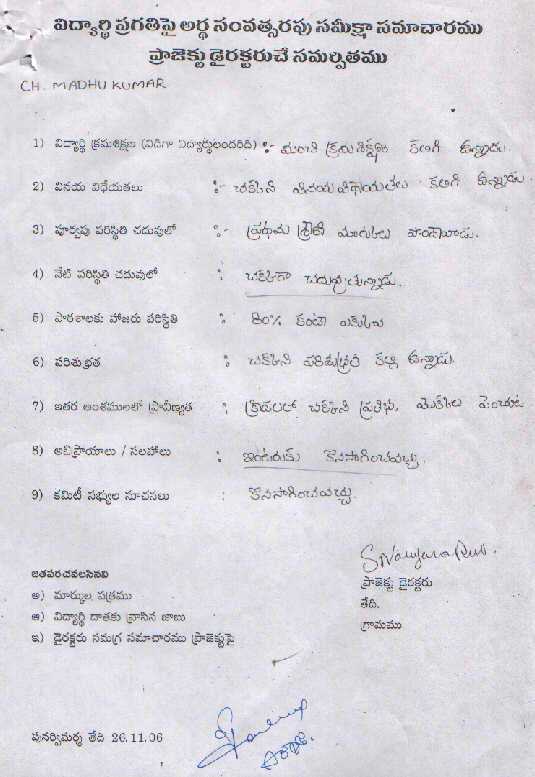 విద్యార్థి ప్రగతిపై అర్ధ సంవత్సరపు సమీక్షా సమాచారము
ప్రాజెక్టు డైరక్టరుచే సమర్పితము
CH. MADHU KUMAR
1) విద్యార్థి క్రమశిక్షణ (విడిగా విద్యార్థులందరిది) :- మంచి క్రమశిక్షణ కలిగి ఉన్నాడు.
2) వినయ విధేయతలు :- చక్కని వినయవిధేయతలు కలిగి ఉన్నాడు.
3) పూర్వపు పరిస్థితి చదువులో :- ప్రథమ శ్రేణి మార్కులు పొందినాడు.
4) నేటి పరిస్థితి చదువులో : చక్కగా చదువుచున్నాడు.
5) పాఠశాలకు హాజరు పరిస్థితి : 80% కంటే ఎక్కువ
6) పరిశుభ్రత : చక్కని పరిశుభ్రత కల్గి ఉన్నాడు.
7) ఇతర అంశములలో ప్రావీణ్యత : క్రీడలలో చక్కని ప్రతిభ, మొక్కల పెంచుట
8) అభిప్రాయాలు / సలహాలు : ఇంటరుకు కొనసాగించవచ్చు.
9) కమిటీ సభ్యుల సూచనలు : కొనసాగించవచ్చు.
ప్రాజెక్టు డైరక్టరు
తేది.
గ్రామము
జతపరచవలసినవి
అ) మార్కుల పత్రము
ఆ) విద్యార్థి దాతకు వ్రాసిన జాబు
ఇ) డైరక్టరు సమగ్ర సమాచారము ప్రాజెక్టుపై
పునర్విమర్శ తేది 26.11.06